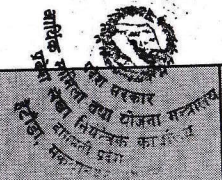 प्रदेश सरकार
आर्थिक मामिला तथा योजना मन्त्रालय
प्रदेश लेखा नियन्त्रक कार्यालय
बागमती प्रदेश
हेटौंडा, मकवानपुर